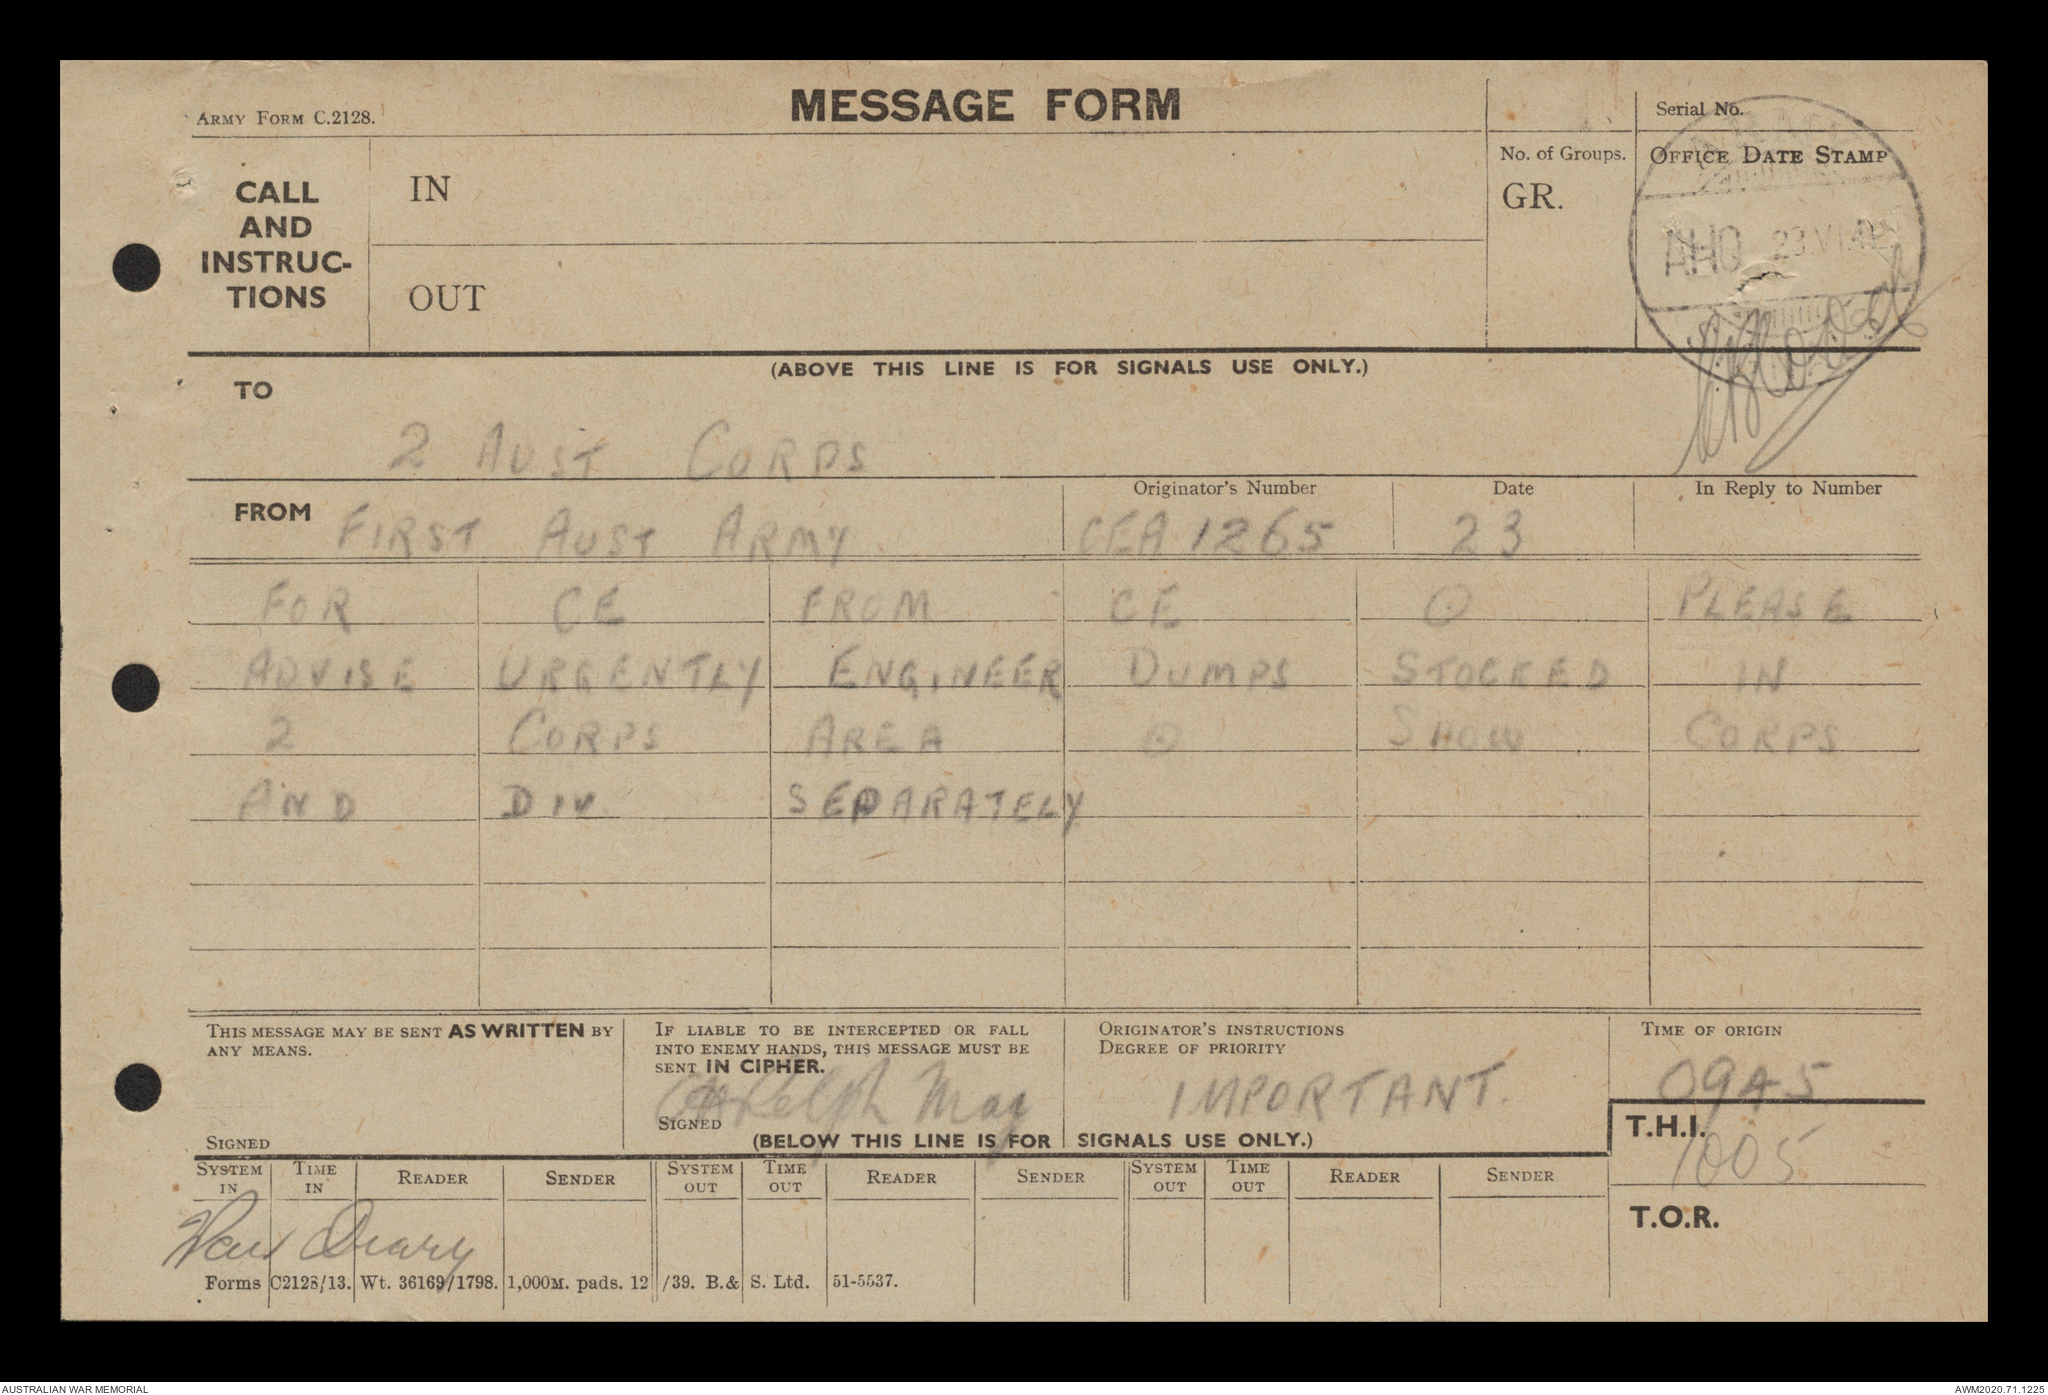 ARMY FORM C.2128.
MESSAGE FORM
Serial No.
CALL AND INSTRUC-TIONS
IN
OUT
No. of Groups.
GR.
OFFICE DATE STAMP
AHQ 23 VI 42
(ABOVE THIS LINE IS FOR SIGNALS USE ONLY.)
TO
2 AUST CORPS
FROM FIRST AUST ARMY
Originator's Number
CEA 1265
Date
23
In Reply to Number
FOR CE FROM CE ⊙ PLEASE
ADVISE URGENTLY ENGINEER DUMPS STOCKED IN
2 CORPS AREA ⊙ SHOW CORPS
AND DIV SEPARATELY
THIS MESSAGE MAY BE SENT AS WRITTEN BY
ANY MEANS.
SIGNED
IF LIABLE TO BE INTERCEPTED OR FALL
INTO ENEMY HANDS, THIS MESSAGE MUST BE
SENT IN CIPHER.
SIGNED
Maj
ORIGINATOR'S INSTRUCTIONS
DEGREE OF PRIORITY
IMPORTANT.
TIME OF ORIGIN
0945
(BELOW THIS LINE IS FOR SIGNALS USE ONLY.)
T.H.I.
1005
T.O.R.
SYSTEM IN TIME IN READER SENDER SYSTEM OUT TIME OUT READER SENDER SYSTEM OUT TIME OUT READER SENDER
War Diary
Forms C2128/13. Wt. 36169/1798. 1,000M. pads. 12/39. B.& S. Ltd. 51-5537.
AUSTRALIAN WAR MEMORIAL
AWM2020.71.1225